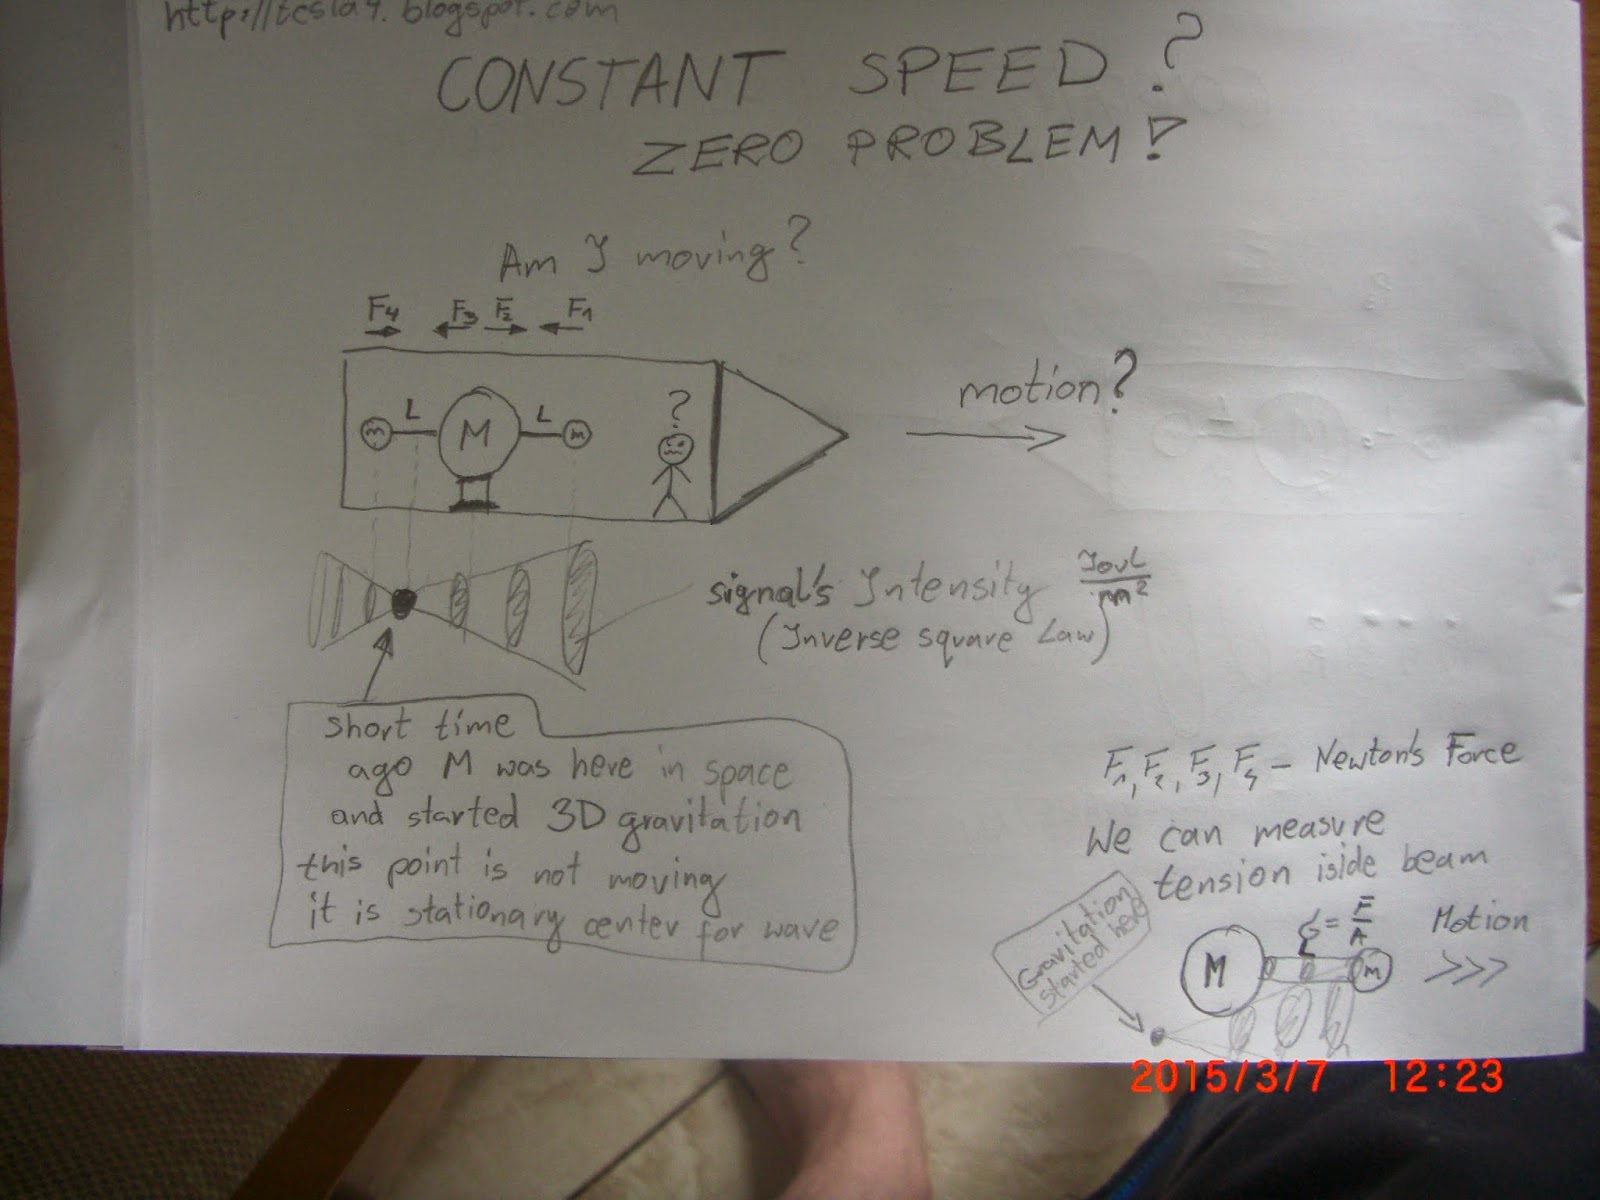 http://tesla4.blogspot.com
CONSTANT SPEED?
ZERO PROBLEM!
Am I moving?
F4 F3 F2 F1
motion?
L L
m M m
?
signal's Intensity Joul/m²
(Inverse square Law)
short time
ago M was here in space
and started 3D gravitation
this point is not moving
it is stationary center for wave
F1, F2, F3, F4 - Newton's Force
We can measure
tension iside beam
Gravitation
started here
σ = F/A
Motion
M L m >>>
2015/3/7 12:23